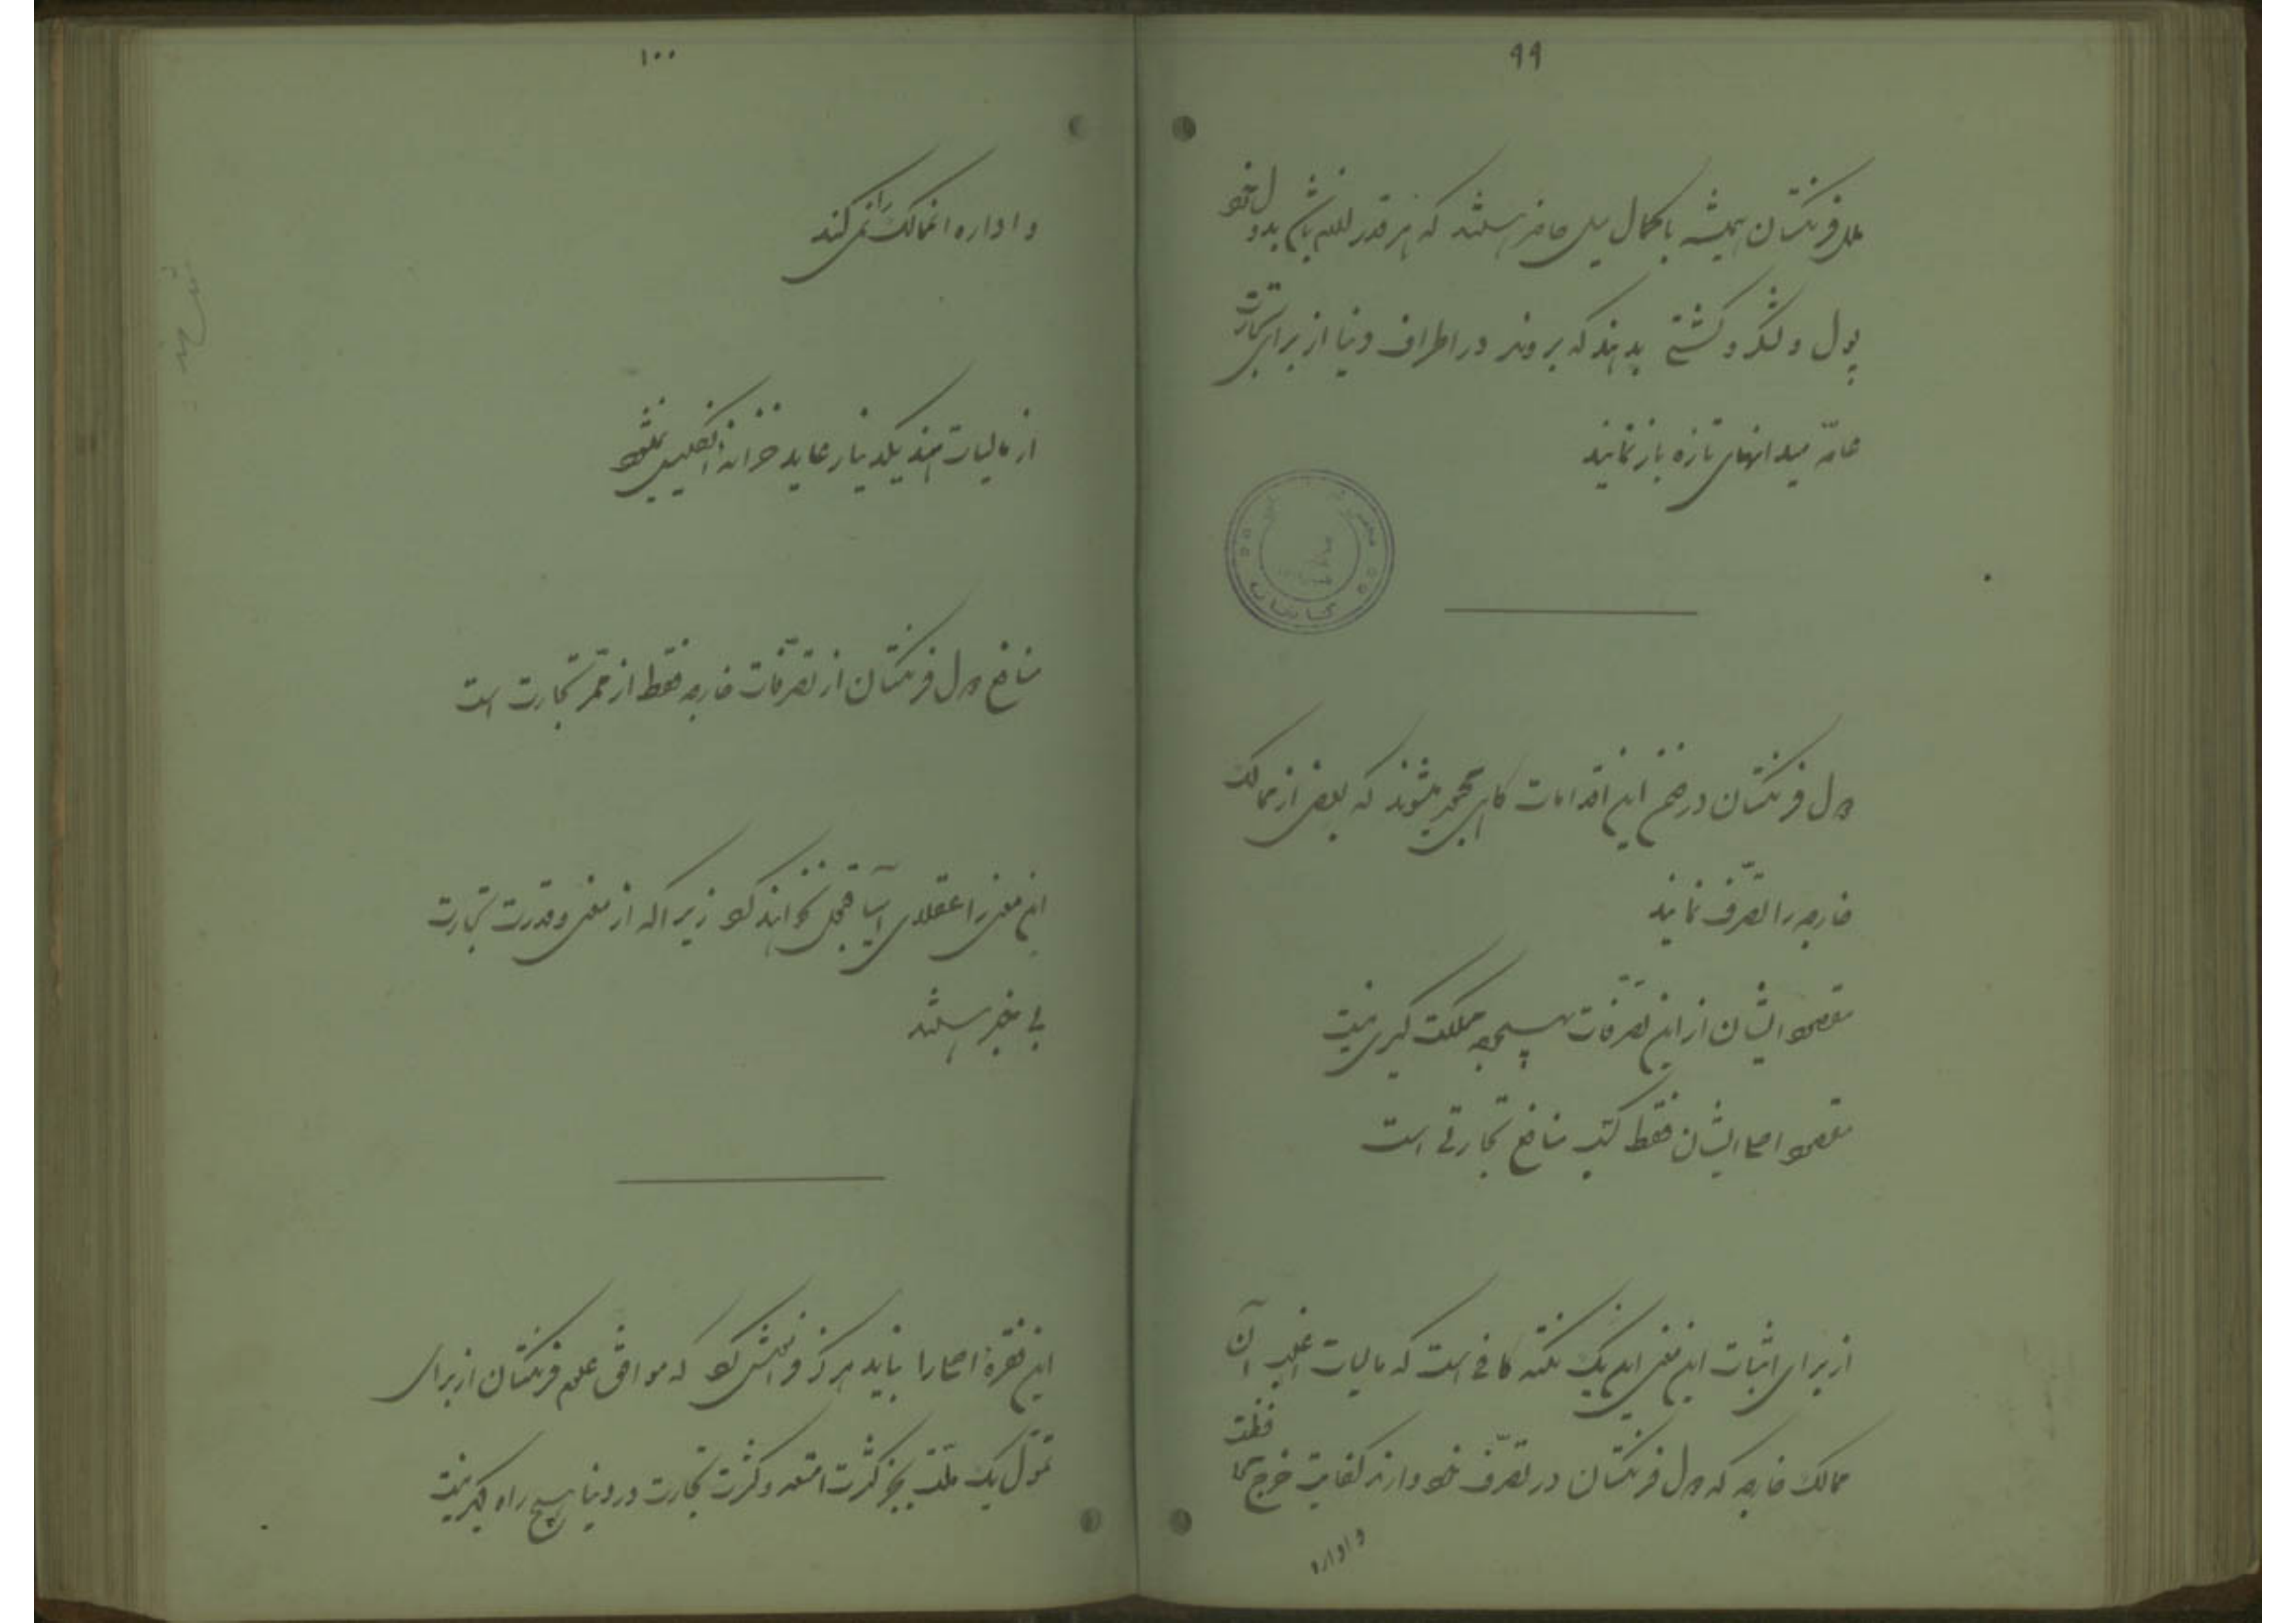 ۹۹
ملل فرنگستان همیشه با کمال میل حاضر هستند که هر قدر لازم باشد بدول خود
پول و لشکر و کشتی بدهند که بروند در اطراف دنیا از برای تجارت
عامّه میدانهای تازه باز نمایند
کتابخانه
دول فرنگستان در ضمن این اقدامات گاهی مجبور میشوند که بعضی از ممالک
خارجه را تصرّف نمایند
مقصود ایشان از این تصرّفات بهیچوجه مملکت گیری نیست
مقصود اصلی ایشان فقط کسب منافع تجارتی است
از برای اثبات این معنی این یک نکته کافی است که مالیات اغلب آن
ممالک خارجه که دول فرنگستان در تصرّف خود دارند کفایت خرج محافظت
و اداره
۱۰۰
و اداره انممالک را نمی کند
از مالیات هند یکدینار عاید خزانه انگلیس نمیشود
منافع دول فرنگستان از تصرّفات خارجه فقط از ممّر تجارت است
این معنی را عقلای آسیا قبول نخواهند کرد زیرا که از معنی و قدرت تجارت
بی خبر هستند
این فقرهٔ اصلی را نباید هرگز فراموش کرد که موافق علم فرنگستان از برای
تموّل یک ملّت بجز کثرت امتعه و کثرت تجارت در دنیا هیچ راه دیگر نیست